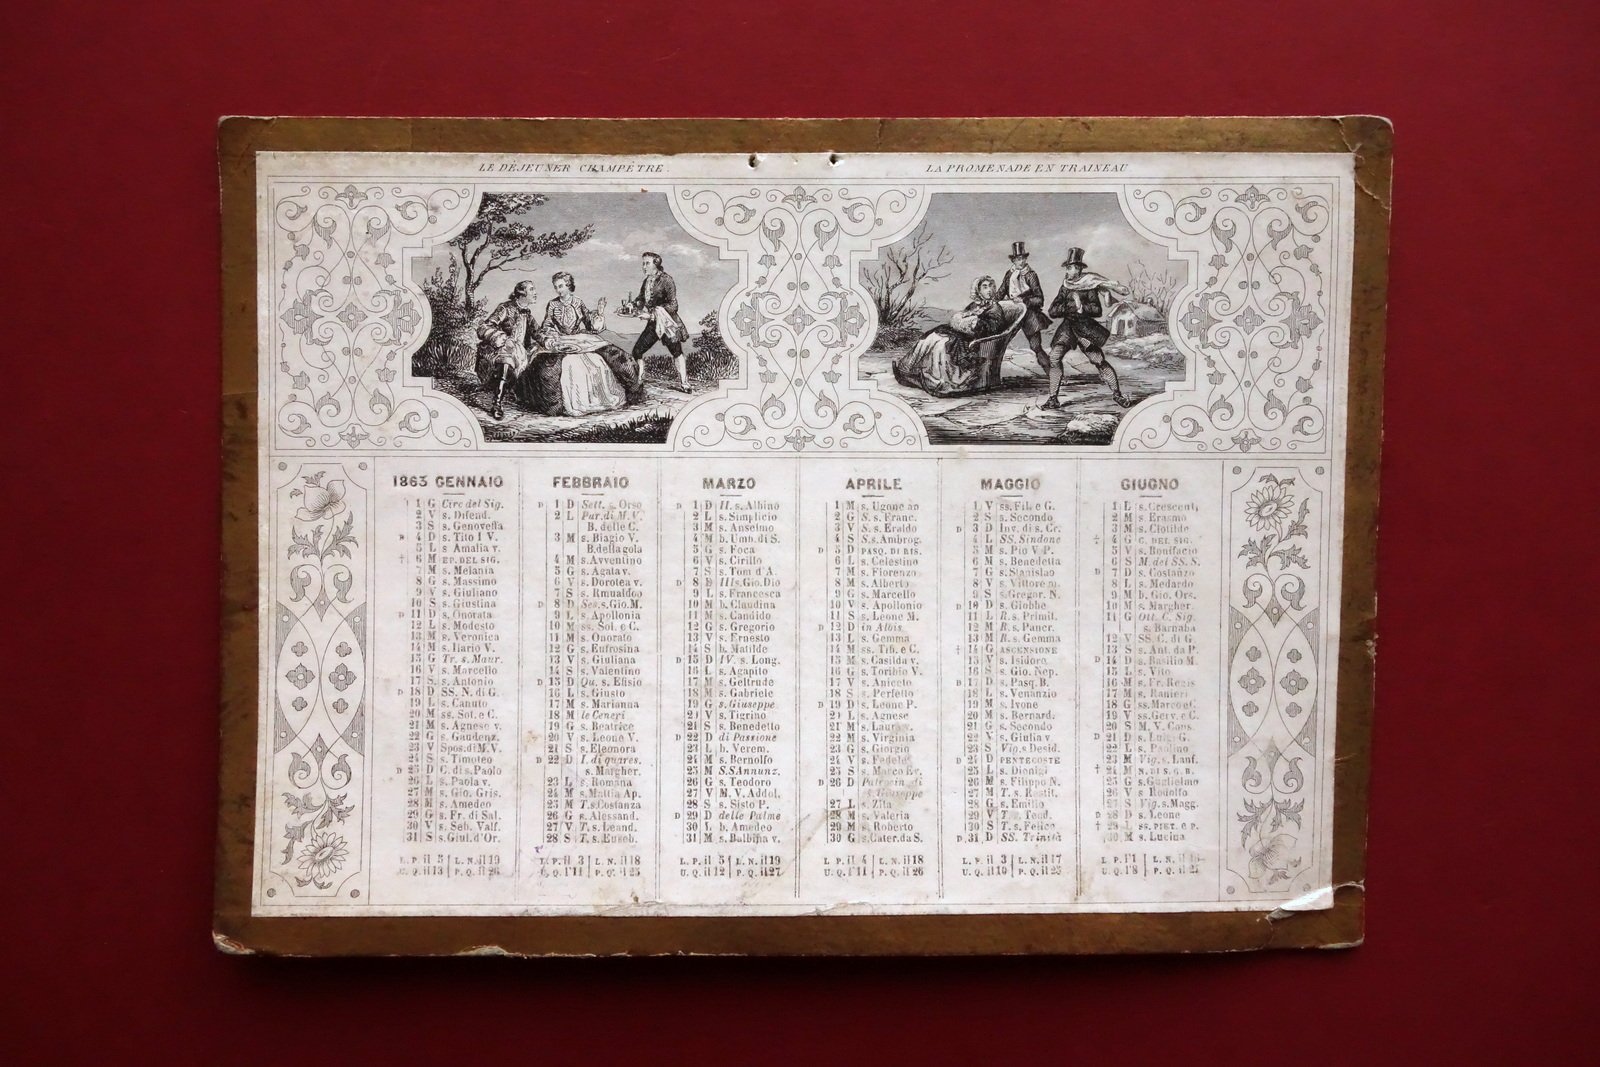 LE DÉJEUNER CHAMPÊTRE.
LA PROMENADE EN TRAINEAU
1863 GENNAIO
1 G Circ del Sig.
2 V s. Difend.
3 S s. Genoveffa
D 4 D s. Tito I V.
5 L s Amalia v.
† 6 M EP. DEL SIG.
7 M s. Melania
8 G s. Massimo
9 V s. Giuliano
10 S s. Giustina
D 11 D s. Onorata
12 L s. Modesto
13 M s. Veronica
14 M s. Ilario V.
15 G Tr. s. Maur.
16 V s. Marcello
17 S s. Antonio
D 18 D SS. N. di G.
19 L s. Canuto
20 M ss. Sot. e C.
21 M s. Agnese v.
22 G s. Gaudenz.
23 V Spos. di M.V.
24 S s. Timoteo
D 25 D C. di s. Paolo
26 L s. Paola v.
27 M s. Gio. Gris.
28 M s. Amedeo
29 G s. Fr. di Sal.
30 V s. Seb. Valf.
31 S s. Giul. d'Or.
L. P. il 5 L. N. il 19
U. Q. il 13 P. Q. il 26
FEBBRAIO
D 1 D Sett. s. Orso
2 L Pur. di M. V.
B. delle C.
3 M s. Biagio V.
B. della gola
4 M s. Avventino
5 G s. Agata v.
6 V s. Dorotea v.
7 S s. Rmualdoo
D 8 D Ses. s. Gio. M.
9 L s. Apollonia
10 M ss. Sol. e C.
11 M s. Onorato
12 G s. Eufrosina
13 V s. Giuliana
14 S s. Valentino
D 15 D Qu. s. Efisio
16 L s. Giusto
17 M s. Marianna
18 M le Ceneri
19 G s. Beatrice
20 V s. Leone V.
21 S s. Eleonora
D 22 D I. di quares.
s. Margher.
23 L s. Romana
24 M s. Mattia Ap.
25 M T. s. Costanza
26 G s. Alessand.
27 V T. s. Leand.
28 S T. s. Euseb.
L. P. il 3 L. N. il 18
U. Q. l'11 P. Q. il 25
MARZO
D 1 D II. s. Albino
2 L s. Simplicio
3 M s. Anselmo
4 M b. Umb. di S.
5 G s. Foca
6 V s. Cirillo
7 S s. Tom d'A.
D 8 D III s. Gio. Dio
9 L s. Francesca
10 M b. Claudina
11 M s. Candido
12 G s. Gregorio
13 V s. Ernesto
14 S b. Matilde
D 15 D IV. s. Long.
16 L s. Agapito
17 M s. Geltrude
18 M s. Gabriele
19 G s. Giuseppe
20 V s. Tigrino
21 S s. Benedetto
D 22 D di Passione
23 L b. Verem.
24 M s. Bernolfo
25 M S.S. Annunz.
26 G s. Teodoro
27 V M. V. Addol.
28 S s. Sisto P.
D 29 D delle Palme
30 L b. Amedeo
31 M s. Balbina v.
L. P. il 5 L. N. il 19
U. Q. il 12 P. Q. il 27
APRILE
1 M s. Ugone an
2 G S. s. Franc.
3 V S. s. Eraldo
4 S S. s. Ambrog.
D 5 D PASQ. DI RIS.
6 L s. Celestino
7 M s. Fiorenzo
8 M s. Alberto
9 G s. Marcello
10 V s. Apollonio
11 S s. Leone M.
D 12 D in Albis
13 L s. Gemma
14 M ss. Tib. e C.
15 M s. Casilda v.
16 G s. Toribio V.
17 V s. Aniceto
18 S s. Perfetto
D 19 D s. Leone P.
20 L s. Agnese
21 M s. Laura v.
22 M s. Virginia
23 G s. Giorgio
24 V s. Fedele
25 S s. Marco Ev.
D 26 D Patrocin di
s. Giuseppe
27 L s. Zita
28 M s. Valeria
29 M s. Roberto
30 G s. Cater. da S.
L. P. il 4 L. N. il 18
U. Q. l'11 P. Q. il 26
MAGGIO
1 V ss. Fil. e G.
2 S s. Secondo
D 3 D Inv. di s. Cr.
4 L SS. Sindone
5 M s. Pio V P.
6 M s. Benedetta
7 G s. Stanislao
8 V s. Vittore m.
9 S s. Gregor. N.
D 10 D s. Giobbe
11 L R. s. Primil.
12 M R. s. Pancr.
13 M R. s. Gemma
† 14 G ASCENSIONE
15 V s. Isidoro
16 S s. Gio. Nep.
D 17 D s. Pasq. B.
18 L s. Venanzio
19 M s. Ivone
20 M s. Bernard.
21 G s. Secondo
22 V s. Giulia v.
23 S Vig. s Desid.
D 24 D PENTECOSTE
25 L s. Dionigi
26 M s. Filippo N.
27 M T. s. Restit.
28 G s. Emilio
29 V T. s. Teod.
30 S T. s. Felice
D 31 D SS. Trinità
L. P. il 3 L. N. il 17
U. Q. il 10 P. Q. il 25
GIUGNO
1 L s. Crescent.
2 M s. Erasmo
3 M s. Clotilde
† 4 G C. DEL SIG.
5 V s. Bonifacio
6 S M. del SS. S.
D 7 D s. Costanzo
8 L s. Medardo
9 M b. Gio. Ors.
10 M s. Margher.
11 G Ott. C. Sig.
s. Barnaba
12 V SS. C. di G.
13 S s. Ant. da P.
D 14 D s. Basilio M.
15 L s. Vito
16 M s. Fr. Regis
17 M s. Ranieri
18 G ss. Marco e C.
19 V ss. Gerv. e C.
20 S M. V. Cons.
D 21 D s. Luigi G.
22 L s. Paolino
23 M Vig. s. Lanf.
† 24 M N. DI S. G. B.
25 G s. Guglielmo
26 V s. Rodolfo
27 S Vig. s. Magg.
D 28 D s. Leone
† 29 L SS. PIET. e P.
30 M s. Lucina
L. P. l'1 L. N. il
U. Q. l'8 P. Q. il